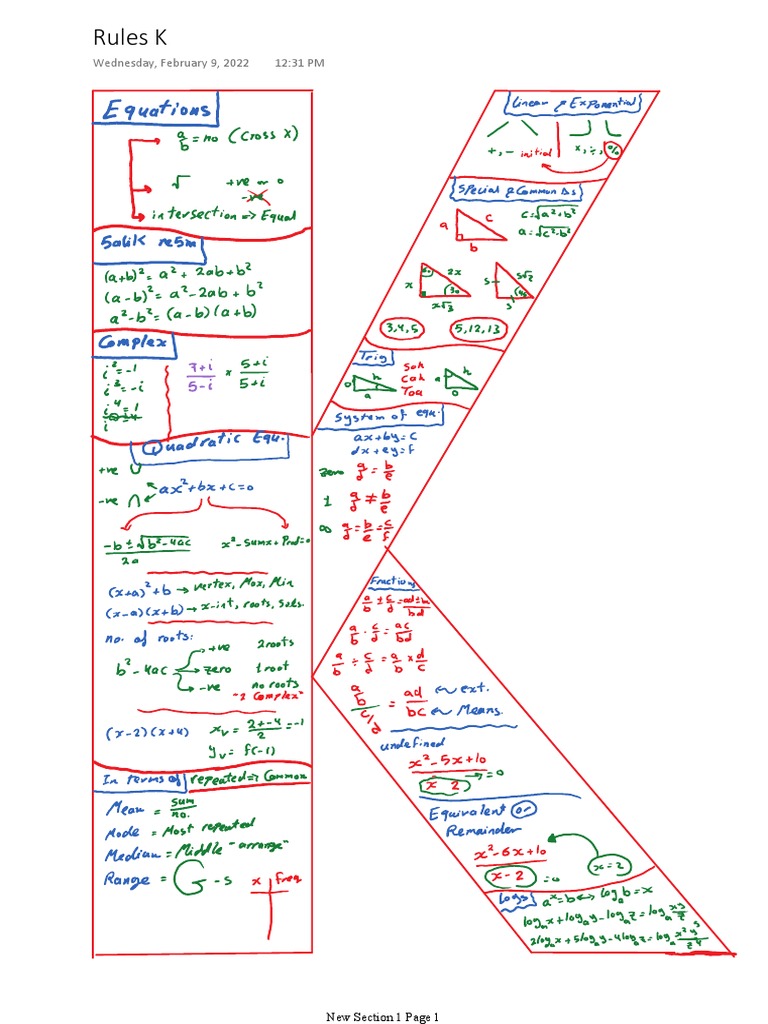 Rules K
Wednesday, February 9, 2022 12:31 PM
Equations
a/b = no (Cross X)
√ +ve or 0
-ve
intersection => Equal
5alik re5m
(a+b)² = a² + 2ab + b²
(a-b)² = a² - 2ab + b²
a² - b² = (a-b)(a+b)
Complex
i² = -1
i³ = -i
i⁴ = 1
i
(7+i)/(5-i) × (5+i)/(5+i)
Quadratic Equ.
+ve ∪
-ve ∩
ax² + bx + c = 0
(-b ± √(b² - 4ac))/2a
x² - sumx + Prod = 0
(x+a)² + b → vertex, Max, Min
(x-a)(x+b) → x-int, roots, sols.
no. of roots:
b² - 4ac
+ve 2 roots
zero 1 root
-ve no roots
"2 Complex"
(x-2)(x+4) xᵥ = (2+-4)/2 = -1
yᵥ = f(-1)
In terms of repeated => Common
Mean = sum/no.
Mode = Most repeated
Median = Middle "arrange"
Range = G - s
x freq
Linear & Exponential
+, - initial ×, ÷, %
Special & Common Δs
a c b
c = √(a²+b²)
a = √(c²-b²)
60 2x x 30 x√3
s s√2 45 s
3,4,5 5,12,13
Trig
o h a
Soh
Cah
Toa
a h o
System of equ.
ax + by = c
dx + ey = f
zero a/d = b/e
1 a/d ≠ b/e
∞ a/d = b/e = c/f
Fractions
a/b · c/d = ac/bd
a/b ÷ c/d = a/b × d/c
(a/b)/(c/d) = ad/bc ext.
Means.
undefined
x² - 5x + 10
x 2 = 0
Equivalent or
Remainder
x² - 6x + 10
x - 2 = 0 x = 2
Logs aˣ = b ⇔ logₐb = x
logₐx + logₐy - logₐz = logₐ xy/z
2logₐx + 5logₐy - 4logₐz = logₐ x²y⁵/z⁴
New Section 1 Page 1